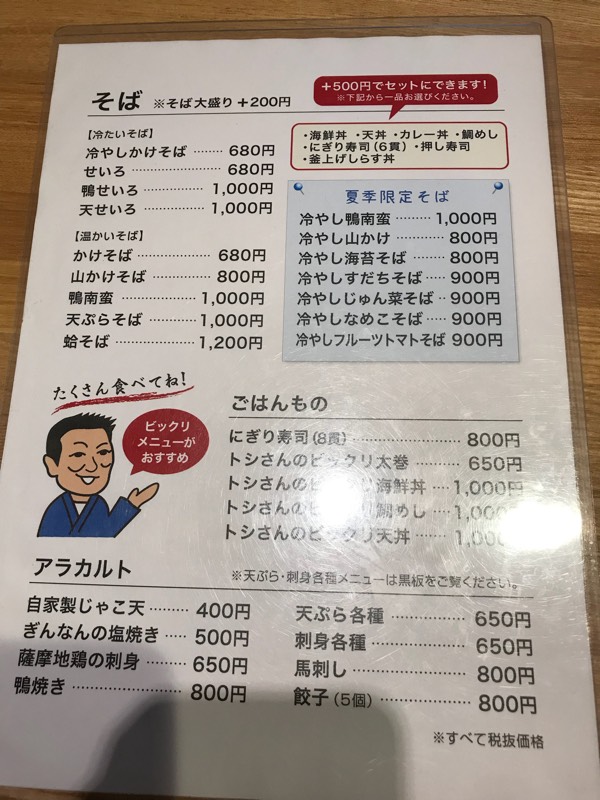 そば ※そば大盛り +200円
+500円でセットにできます!
※下記から一品お選びください。
・海鮮丼 ・天丼 ・カレー丼 ・鯛めし
・にぎり寿司(6貫) ・押し寿司
・釜上げしらす丼
【冷たいそば】
冷やしかけそば ……… 680円
せいろ ……………… 680円
鴨せいろ ………… 1,000円
天せいろ ………… 1,000円
【温かいそば】
かけそば ……………… 680円
山かけそば ………… 800円
鴨南蛮 …………… 1,000円
天ぷらそば ……… 1,000円
蛤そば …………… 1,200円
夏季限定そば
冷やし鴨南蛮 ……… 1,000円
冷やし山かけ ……… 800円
冷やし海苔そば …… 800円
冷やしすだちそば … 900円
冷やしじゅん菜そば ‥ 900円
冷やしなめこそば … 900円
冷やしフルーツトマトそば 900円
たくさん食べてね!
ビックリ
メニューが
おすすめ
ごはんもの
にぎり寿司(8貫) ……………… 800円
トシさんのビックリ太巻 ……… 650円
トシさんのビックリ海鮮丼 … 1,000円
トシさんのビックリ鯛めし … 1,000
トシさんのビックリ天丼 …… 1,000円
アラカルト
※天ぷら・刺身各種メニューは黒板をご覧ください。
自家製じゃこ天 ……… 400円
ぎんなんの塩焼き …… 500円
薩摩地鶏の刺身 ……… 650円
鴨焼き ……………… 800円
天ぷら各種 …………… 650円
刺身各種 ……………… 650円
馬刺し ………………… 800円
餃子(5個) …………… 800円
※すべて税抜価格